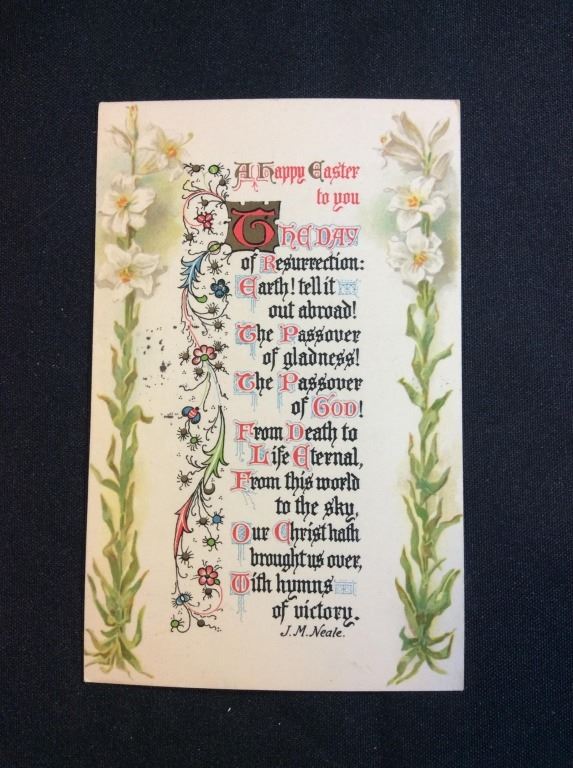 A Happy Easter
to you
The Day
of Resurrection:
Earth! tell it
out abroad!
The Passover
of gladness!
The Passover
of God!
From Death to
Life Eternal,
From this world
to the sky,
Our Christ hath
brought us over,
With hymns
of victory.
J. M. Neale.